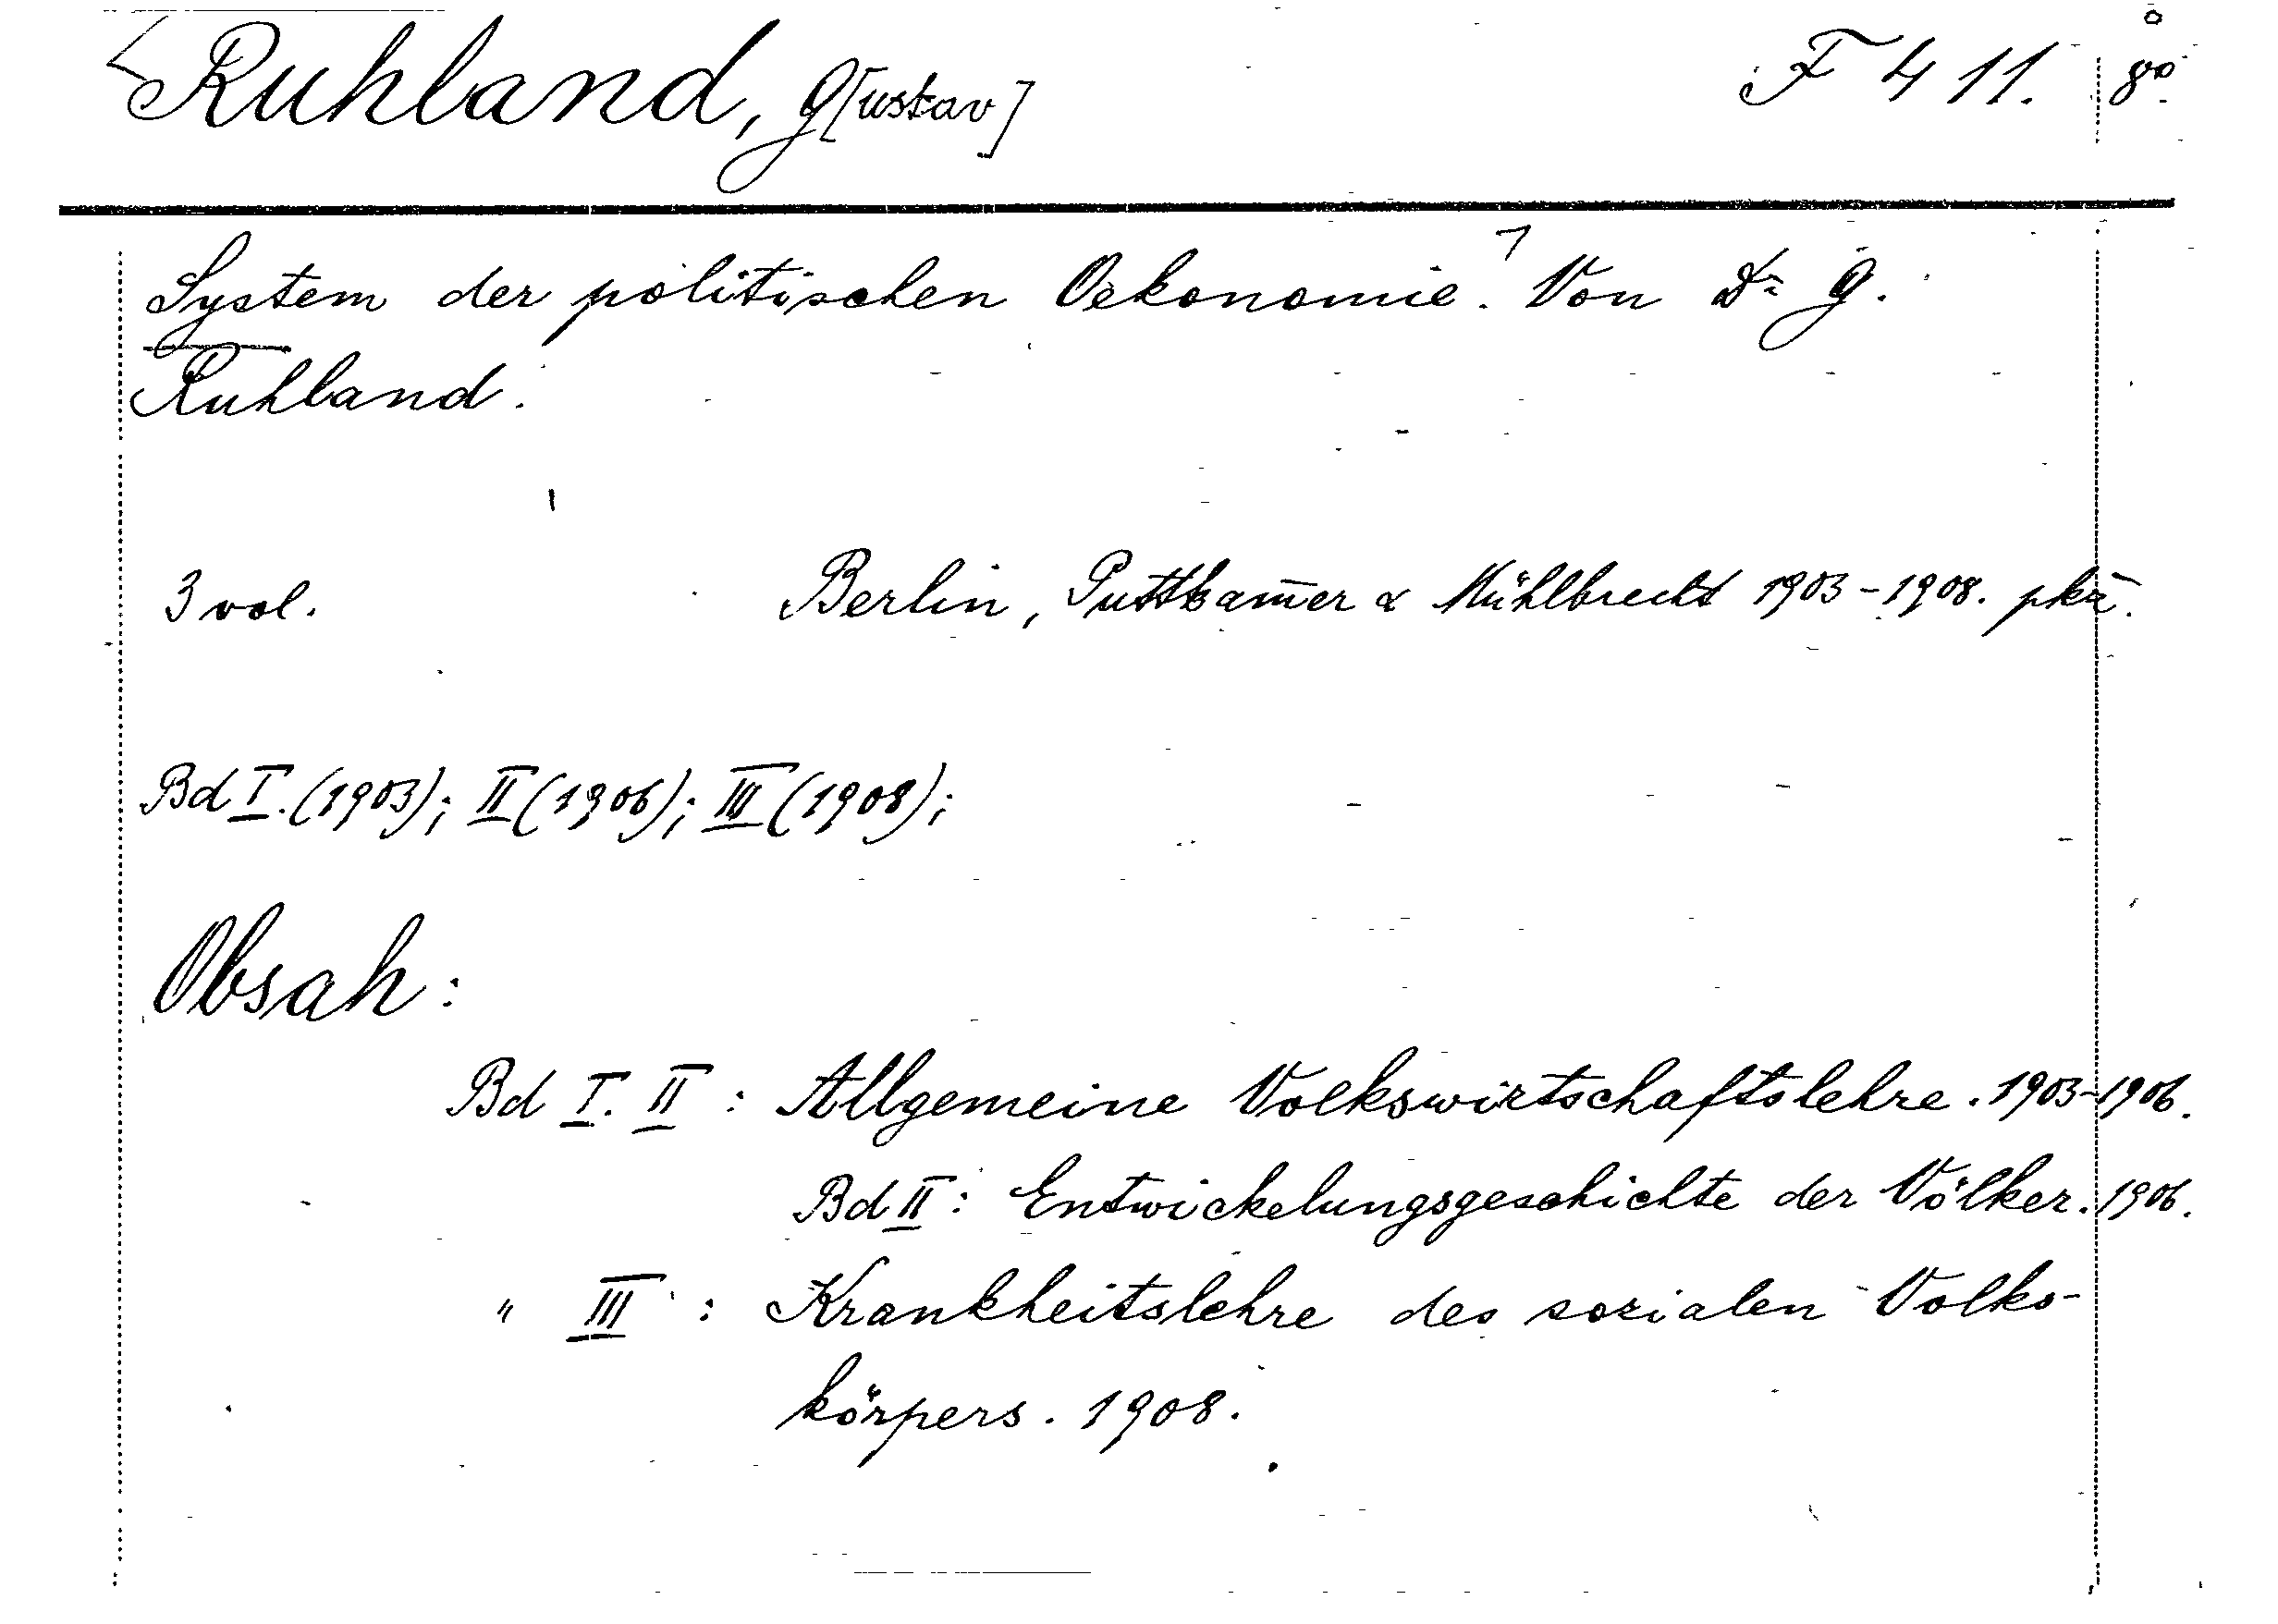 Ruhland, G[ustav] F 411. 8º
System der politischen Oekonomie. Von Dr G.
Ruhland.
3 vol. Berlin, Puttkam̄er & Mühlbrecht 1903-1908.
Bd I. (1903); II (1906); III (1908);
Obsah:
Bd I. II : Allgemeine Volkswirtschaftslehre. 1903-1906.
Bd II : Entwickelungsgeschichte der Völker. 1906.
" III : Krankheitslehre des sozialen Volks-
körpers. 1908.